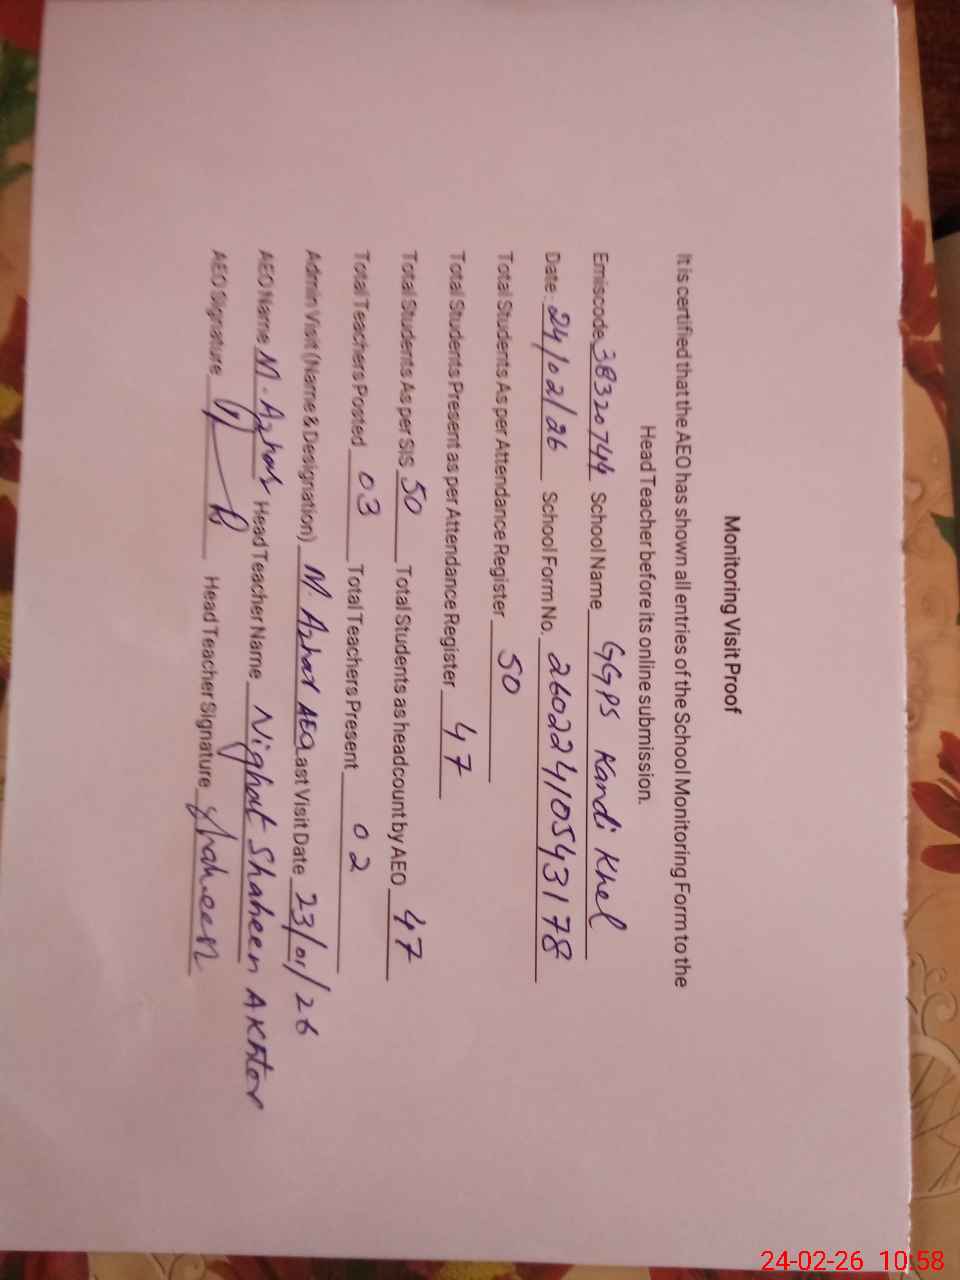 Monitoring Visit Proof
It is certified that the AEO has shown all entries of the School Monitoring Form to the
Head Teacher before its online submission.
Emiscode 38320744 School Name GGPS Kandi Khel
Date: 24/02/26 School Form No. 260224105943178
Total Students As per Attendance Register 50
Total Students Present as per Attendance Register 47
Total Students As per SIS 50 Total Students as headcount by AEO 47
Total Teachers Posted 03 Total Teachers Present 02
Admin Visit (Name & Designation) M. Azhar AEO Last Visit Date 23/01/26
AEO Name M. Azhar Head Teacher Name Nighat Shaheen Akhtar
AEO Signature Head Teacher Signature Shaheen
24-02-26 10:58